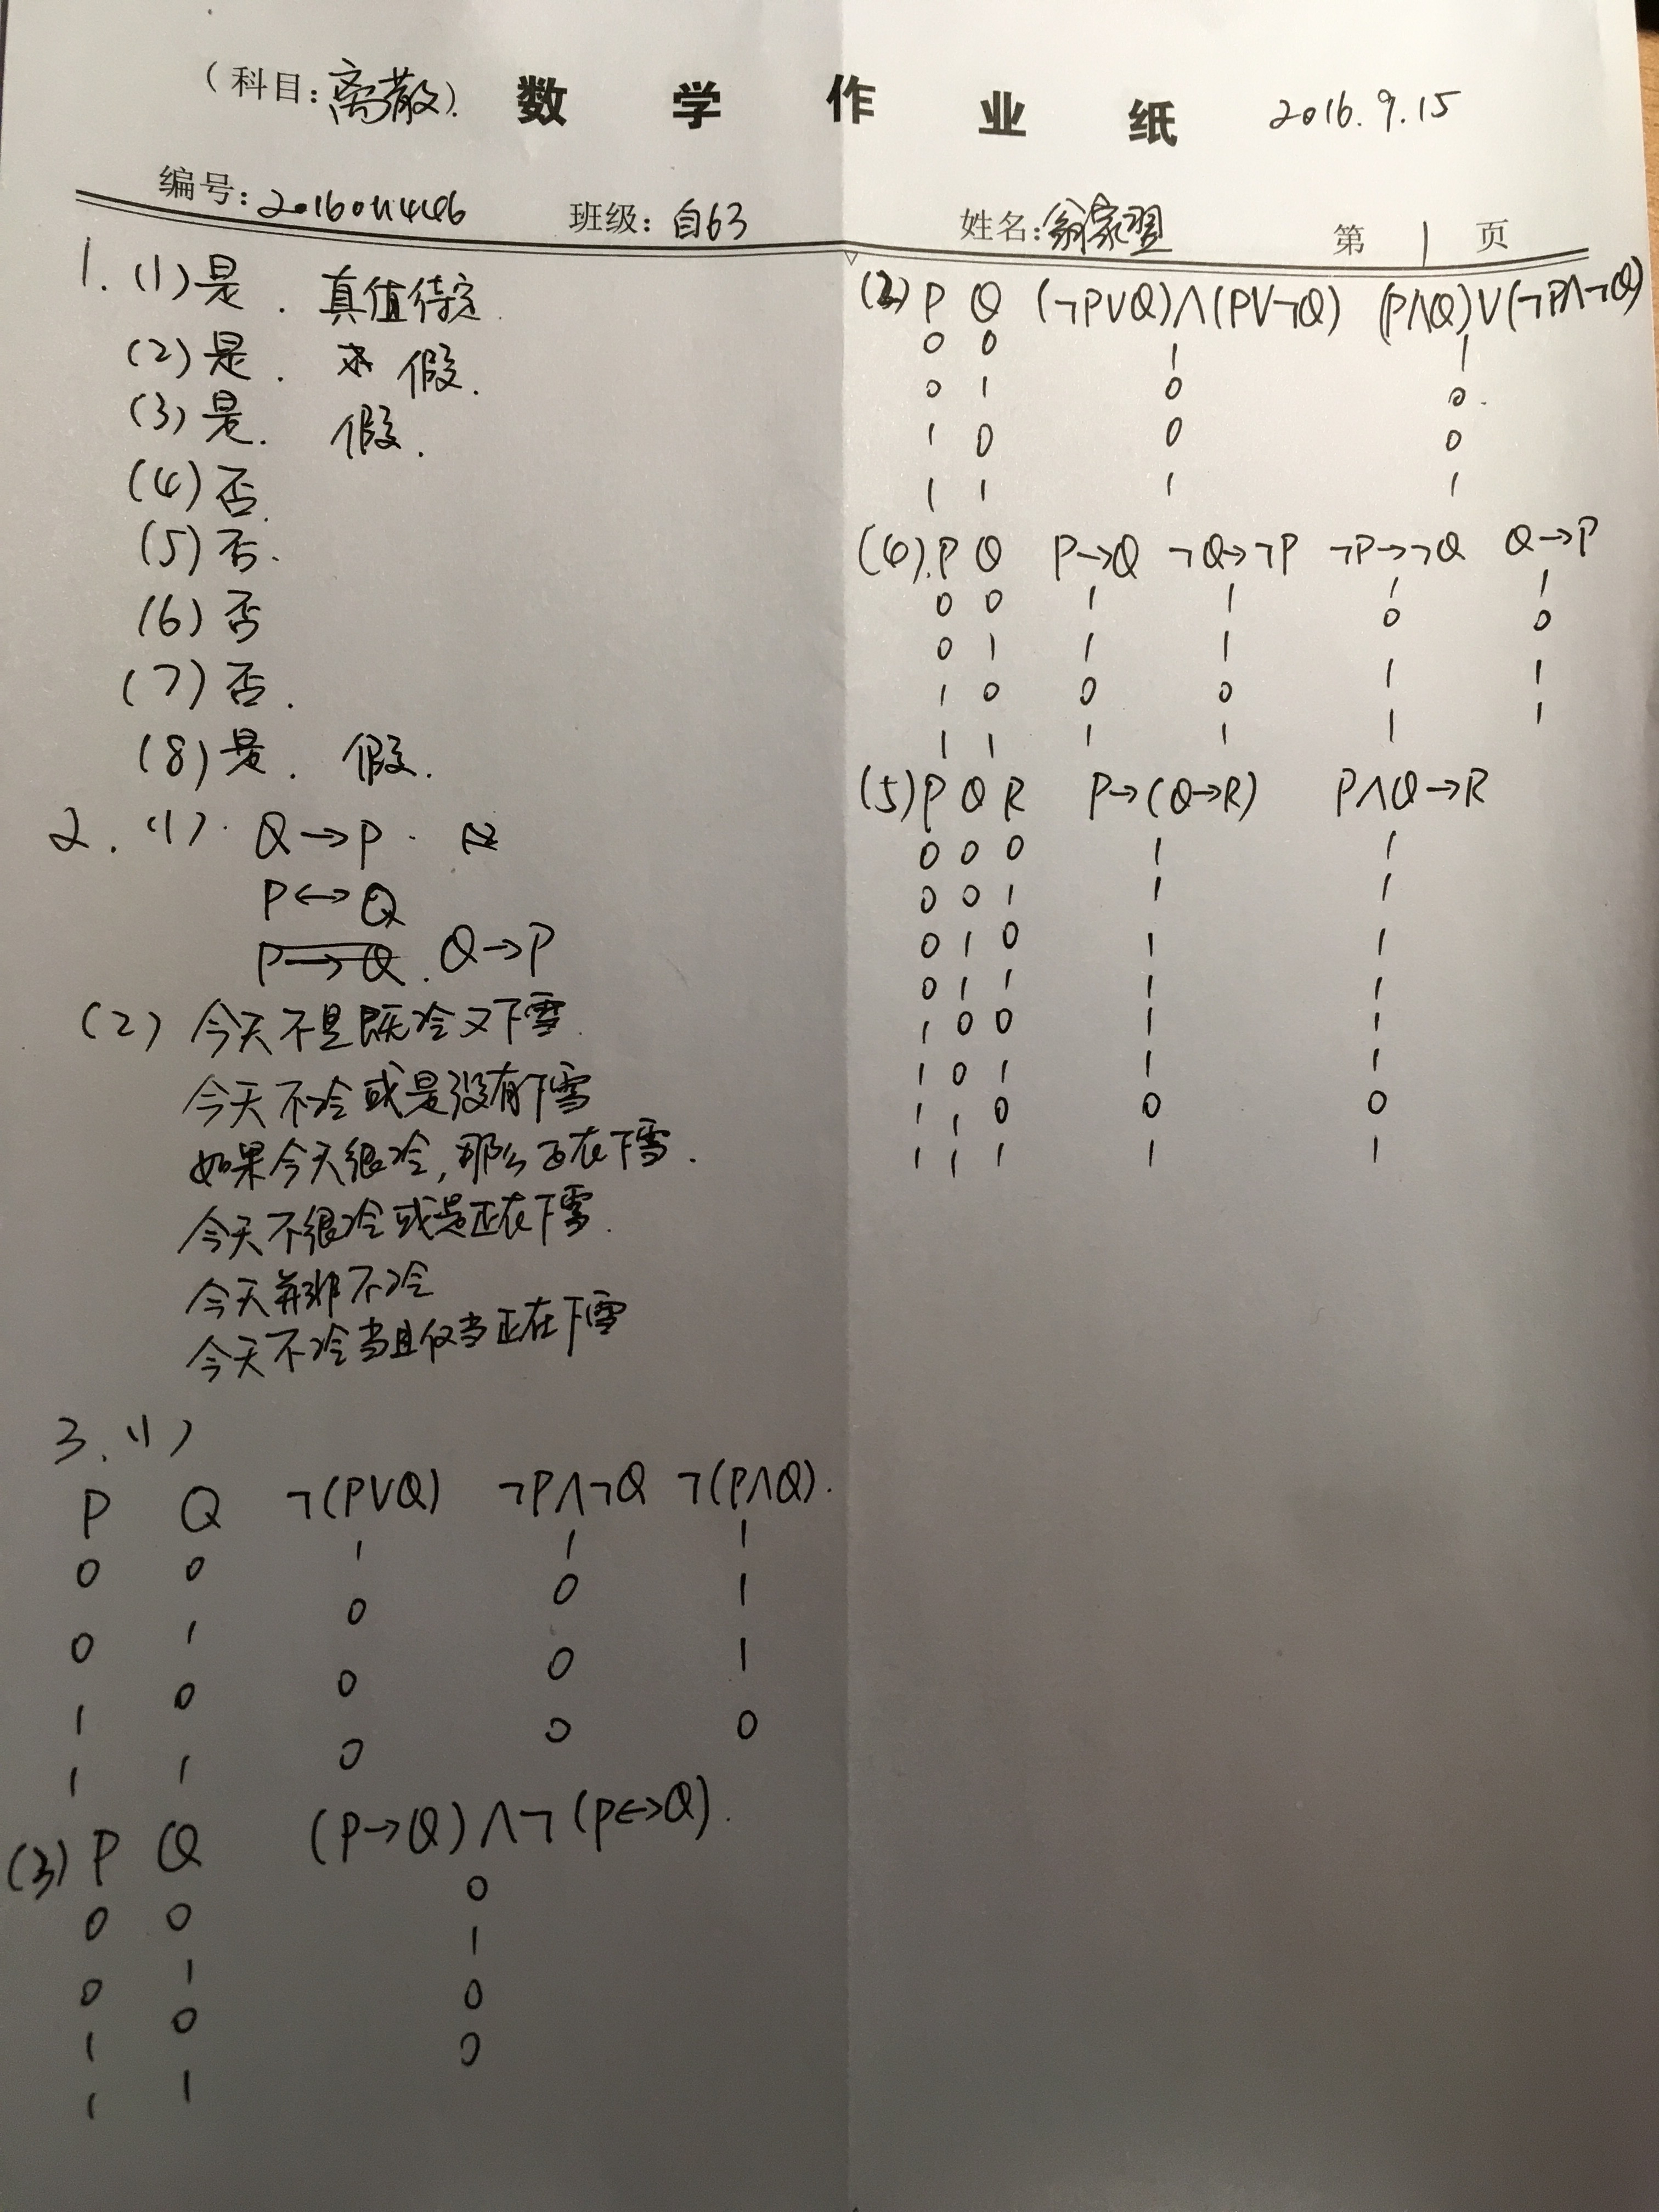 (科目:离散) 数学作业纸 2016.9.15
编号:2016011446 班级:自63 姓名:翁家翌 第 1 页
1. (1) 是. 真值待定.
(2) 是. 假.
(3) 是. 假.
(4) 否.
(5) 否.
(6) 否
(7) 否.
(8) 是. 假.
2. (1). Q→P.
P↔Q
P→Q. Q→P
(2) 今天不是既冷又下雪.
今天不冷或是没有下雪
如果今天很冷,那么正在下雪.
今天不很冷或是正在下雪.
今天并非不冷
今天不冷当且仅当正在下雪
3. (1)
P Q ¬(P∨Q) ¬P∧¬Q ¬(P∧Q).
0 0 1 1 1
0 1 0 0 1
1 0 0 0 1
1 1 0 0 0
(3) P Q (P→Q)∧¬(P↔Q).
0 0 0
0 1 1
1 0 0
1 1 0
P Q (¬P∨Q)∧(P∨¬Q) (P∧Q)∨(¬P∧¬Q)
0 0 1 1
0 1 0 0
1 0 0 0
1 1 1 1
P Q P→Q ¬Q→¬P ¬P→¬Q Q→P
0 0 1 1 1 1
0 1 1 1 0 0
1 0 0 0 1 1
1 1 1 1 1 1
(5) P Q R P→(Q→R) P∧Q→R
0 0 0 1 1
0 0 1 1 1
0 1 0 1 1
0 1 1 1 1
1 0 0 1 1
1 0 1 1 1
1 1 0 0 0
1 1 1 1 1